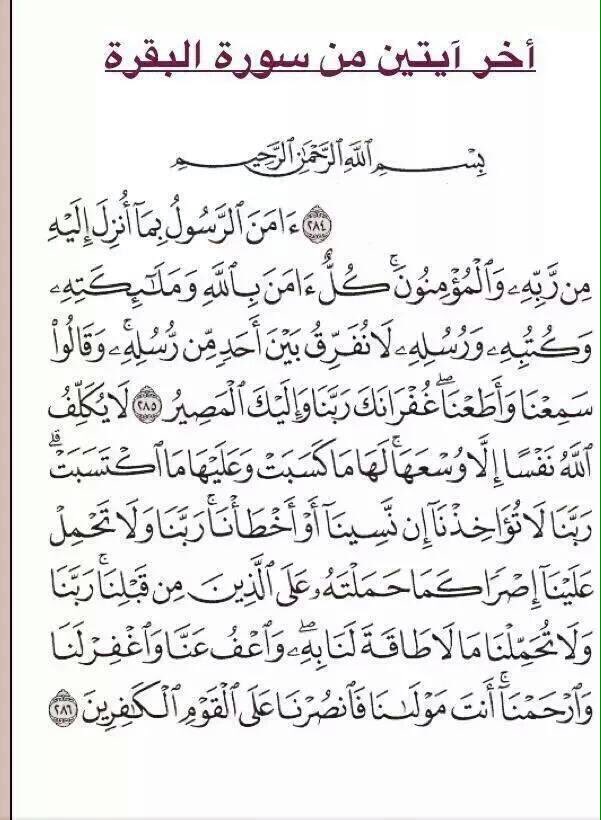 أخر آيتين من سورة البقرة
بِسْمِ ٱللَّهِ ٱلرَّحْمَٰنِ ٱلرَّحِيمِ
٢٨٤ ءَامَنَ ٱلرَّسُولُ بِمَآ أُنزِلَ إِلَيْهِ
مِن رَّبِّهِۦ وَٱلْمُؤْمِنُونَۚ كُلٌّ ءَامَنَ بِٱللَّهِ وَمَلَٰٓئِكَتِهِۦ
وَكُتُبِهِۦ وَرُسُلِهِۦ لَا نُفَرِّقُ بَيْنَ أَحَدٍ مِّن رُّسُلِهِۦۚ وَقَالُوا۟
سَمِعْنَا وَأَطَعْنَاۖ غُفْرَانَكَ رَبَّنَا وَإِلَيْكَ ٱلْمَصِيرُ ٢٨٥ لَا يُكَلِّفُ
ٱللَّهُ نَفْسًا إِلَّا وُسْعَهَاۚ لَهَا مَا كَسَبَتْ وَعَلَيْهَا مَا ٱكْتَسَبَتْۗ
رَبَّنَا لَا تُؤَاخِذْنَآ إِن نَّسِينَآ أَوْ أَخْطَأْنَاۚ رَبَّنَا وَلَا تَحْمِلْ
عَلَيْنَآ إِصْرًا كَمَا حَمَلْتَهُۥ عَلَى ٱلَّذِينَ مِن قَبْلِنَاۚ رَبَّنَا
وَلَا تُحَمِّلْنَا مَا لَا طَاقَةَ لَنَا بِهِۦۖ وَٱعْفُ عَنَّا وَٱغْفِرْ لَنَا
وَٱرْحَمْنَآۚ أَنتَ مَوْلَىٰنَا فَٱنصُرْنَا عَلَى ٱلْقَوْمِ ٱلْكَٰفِرِينَ ٢٨٦